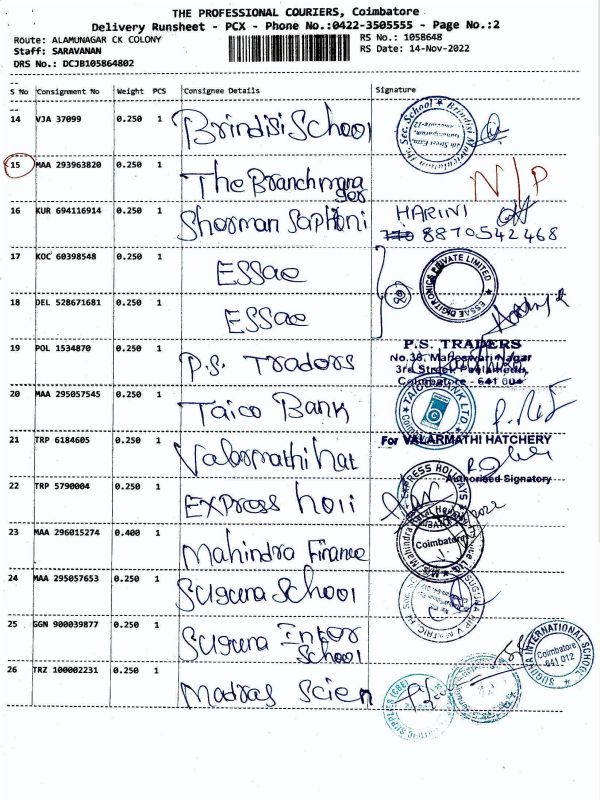 THE PROFESSIONAL COURIERS, Coimbatore
Delivery Runsheet - PCX - Phone No.:0422-3505555 - Page No.:2
Route: ALAMUNAGAR CK COLONY
RS No.: 1058648
Staff: SARAVANAN
RS Date: 14-Nov-2022
DRS No.: DCJB105864802
S No Consignment No Weight PCS Consignee Details Signature
14 VJA 37099 0.250 1 Brindisi School
15 MAA 293963820 0.250 1 The Branch mana
ger
N/P
16 KUR 694116914 0.250 1 HARINI
8870542468
17 KOC 60398548 0.250 1 ESSae
ESSAE DIGITRONICS PRIVATE LIMITED
18 DEL 528671681 0.250 1 ESSae
19 POL 1534870 0.250 1 P.S. Tradors
P.S. TRADERS
No.38, Maheswari Nagar
3rd Street Peelamedu
Coimbatore - 641 004
20 MAA 295057545 0.250 1 Taico Bank
21 TRP 6184605 0.250 1 Valarmathi hat
For VALARMATHI HATCHERY
Authorised Signatory
22 TRP 5790004 0.250 1 Express Holi
EXPRESS HOLIDAYS
23 MAA 296015274 0.400 1 Mahindra Finance
Coimbatore
24 MAA 295057653 0.250 1 Suguna School
25 GGN 900039877 0.250 1 Suguna Inter
School
SUGUNA INTERNATIONAL SCHOOL
Coimbatore
641 012
26 TRZ 100002231 0.250 1 Madras Scien